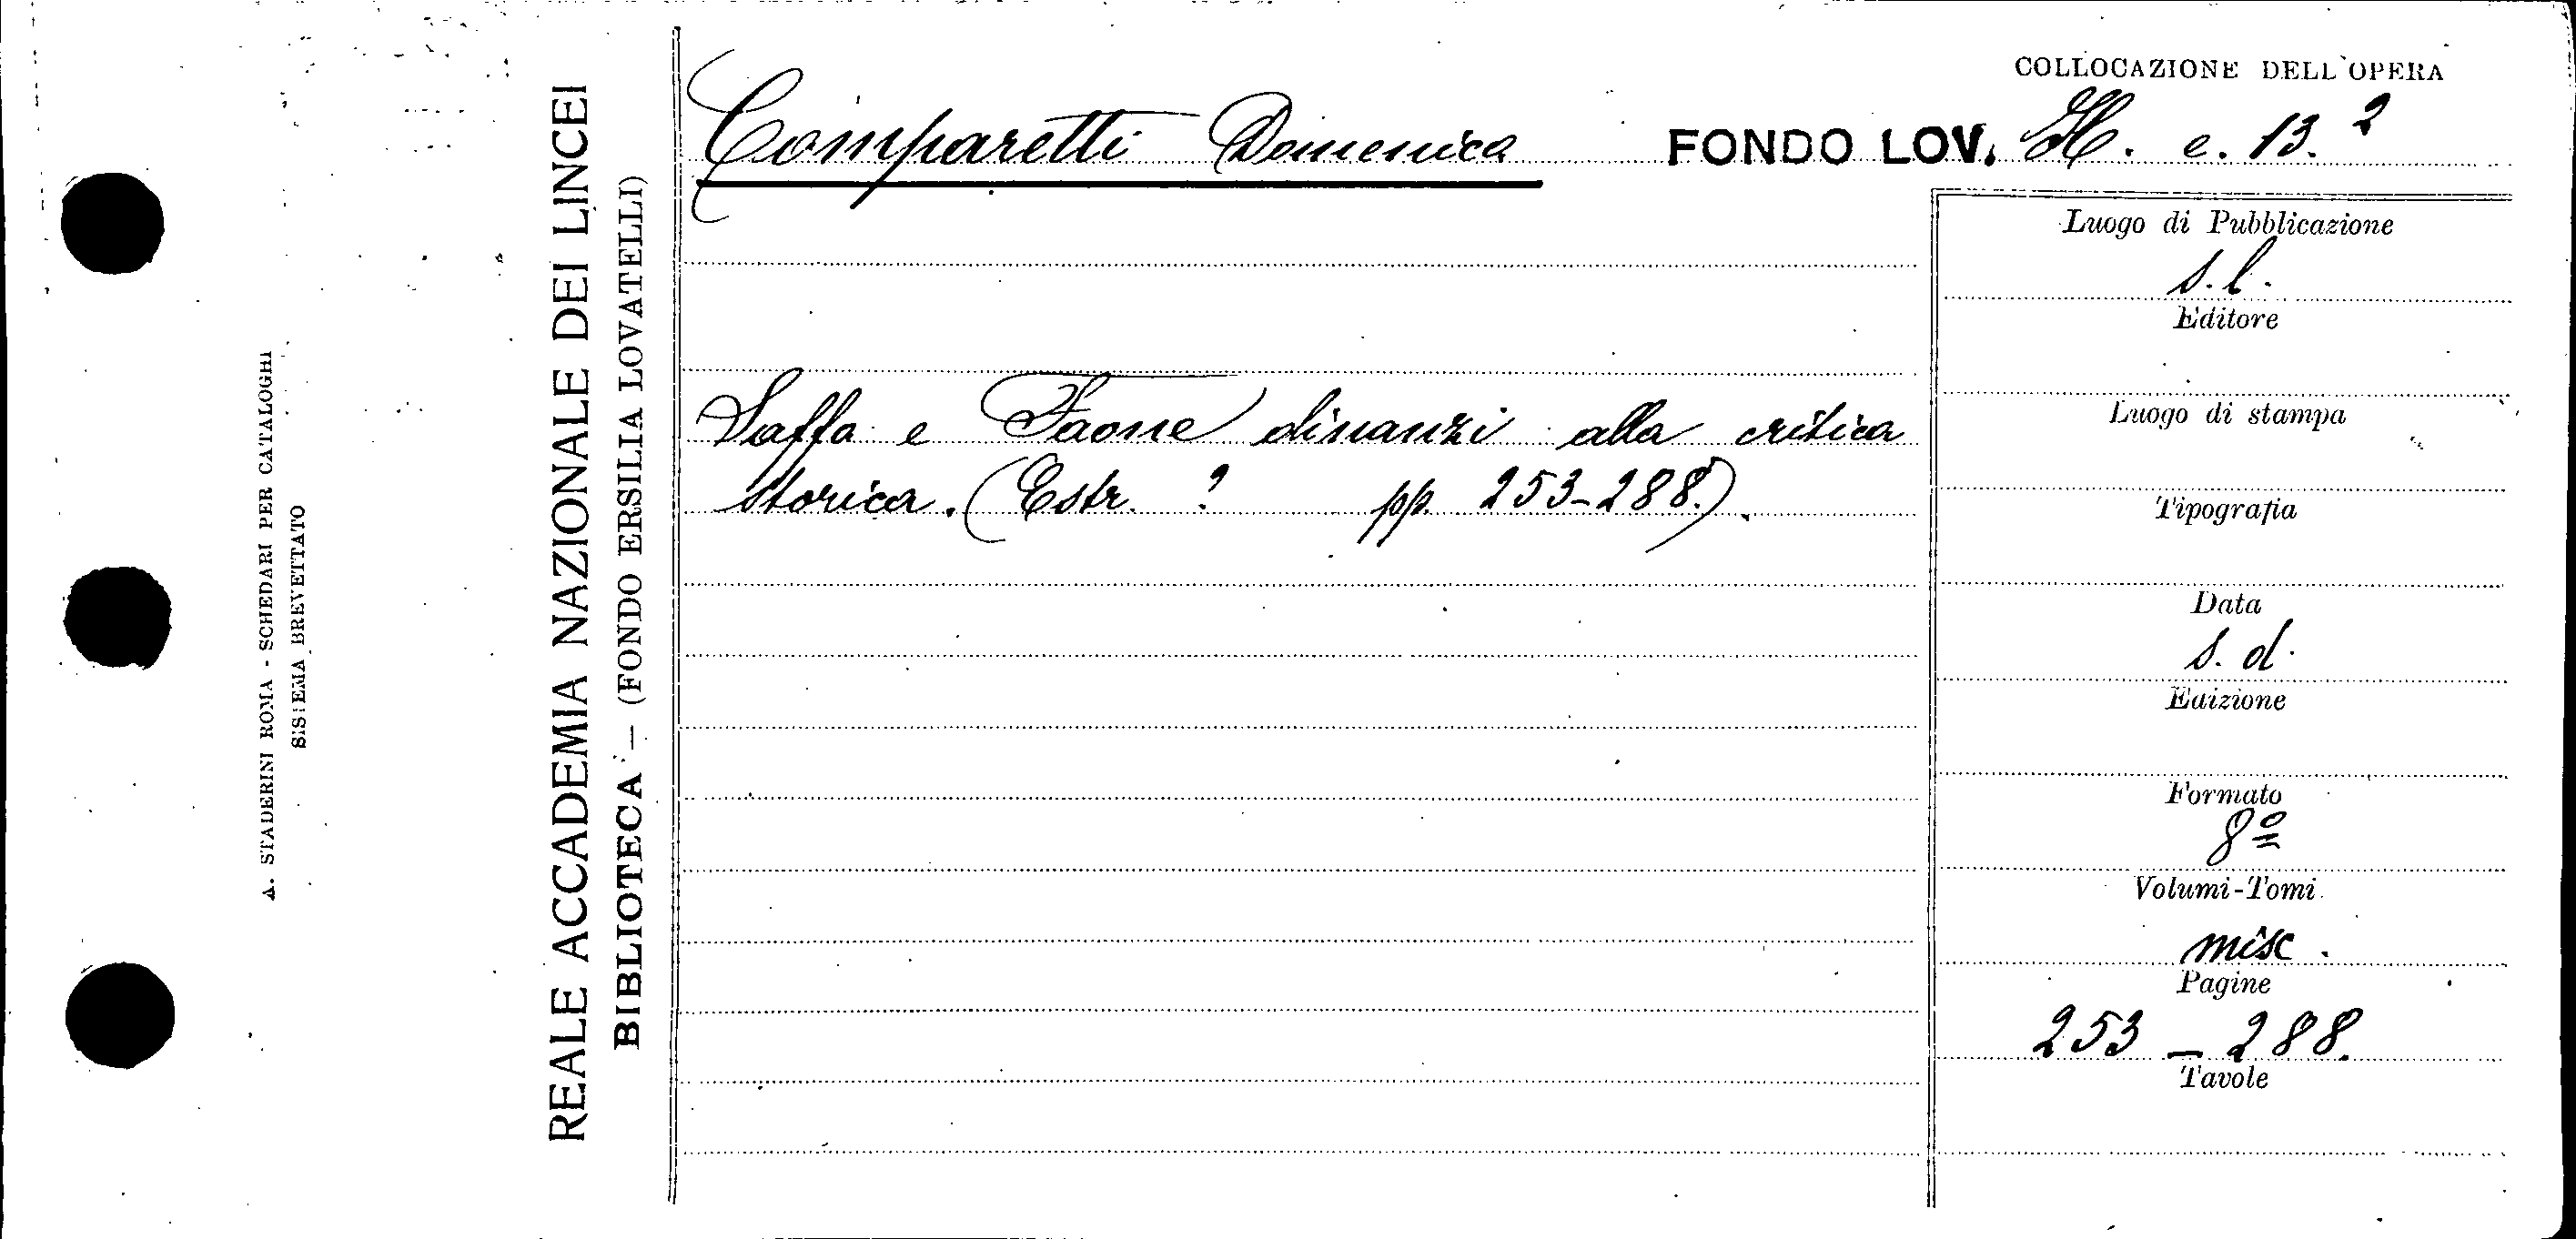 COLLOCAZIONE DELL'OPERA
Comparetti Domenico
FONDO LOV. H. e. 13. 2
Saffo e Faone dinanzi alla critica
storica. (Estr. ? pp. 253-288.).
Luogo di Pubblicazione
s. l.
Editore
Luogo di stampa
Tipografia
Data
s. d.
Edizione
Formato
8º
Volumi-Tomi
misc.
Pagine
253 - 288.
Tavole
REALE ACCADEMIA NAZIONALE DEI LINCEI
BIBLIOTECA — (FONDO ERSILIA LOVATELLI)
A. STADERINI ROMA - SCHEDARI PER CATALOGHI
SISTEMA BREVETTATO